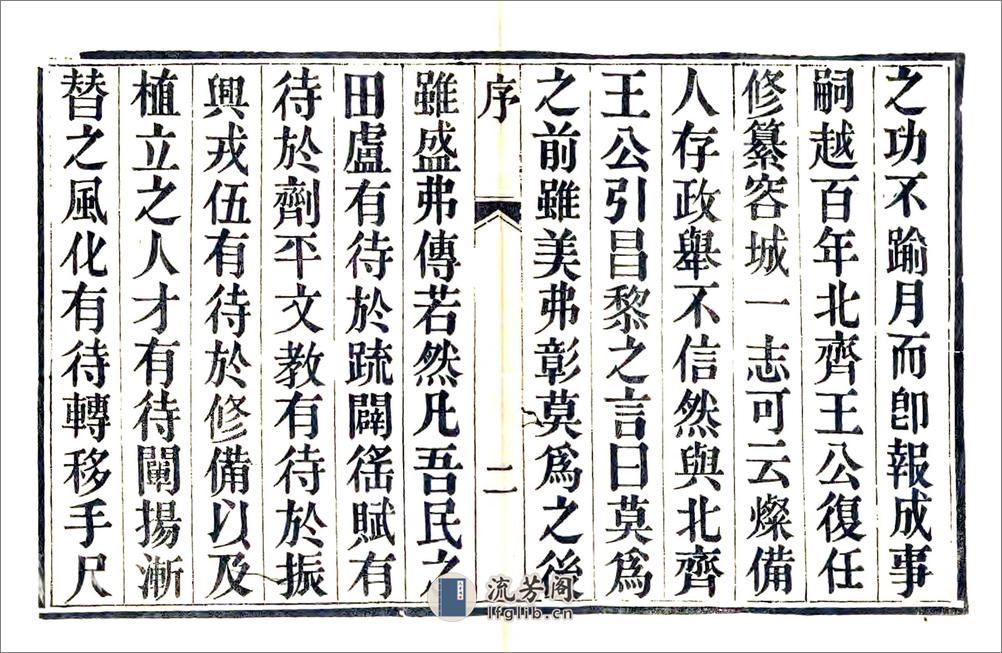 之功不踰月而卽報成事
嗣越百年北齊王公復任
修纂容城一志可云燦備
人存政舉不信然與北齊
王公引昌黎之言曰莫爲
之前雖美弗彰莫爲之後
序
二
雖盛弗傳若然凡吾民之
田盧有待於疏闢徭賦有
待於劑平文教有待於振
興戎伍有待於修備以及
植立之人才有待闡揚漸
替之風化有待轉移手尺
流芳阁
lfglib.cn